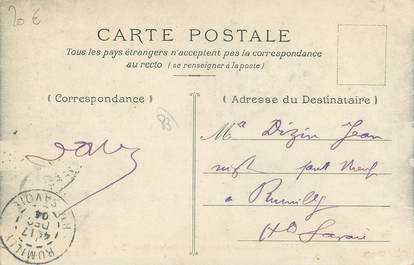 20 €
CARTE POSTALE
Tous les pays étrangers n'acceptent pas la correspondance
au recto (se renseigner à la poste)
( Correspondance )
( Adresse du Destinataire )
83
Dizin Jean
à Rumilly
Hte Savoie
RUMILLY
HTE SAVOIE
4E 17
DEC
04